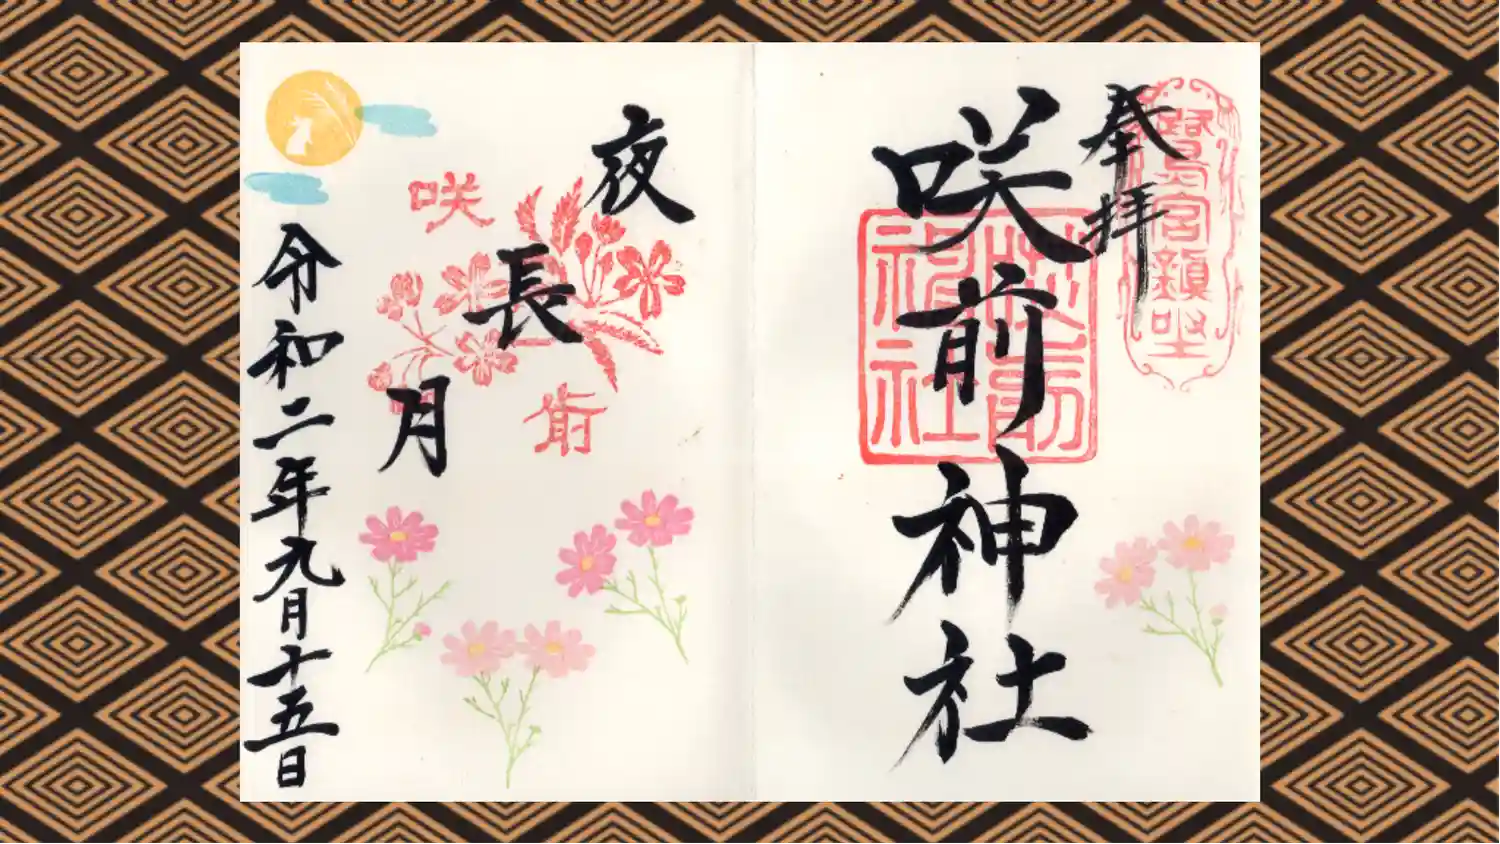 奉拝
鷲宮鎮座
咲前神社
咲前神社
夜長月
咲前
令和二年九月十五日